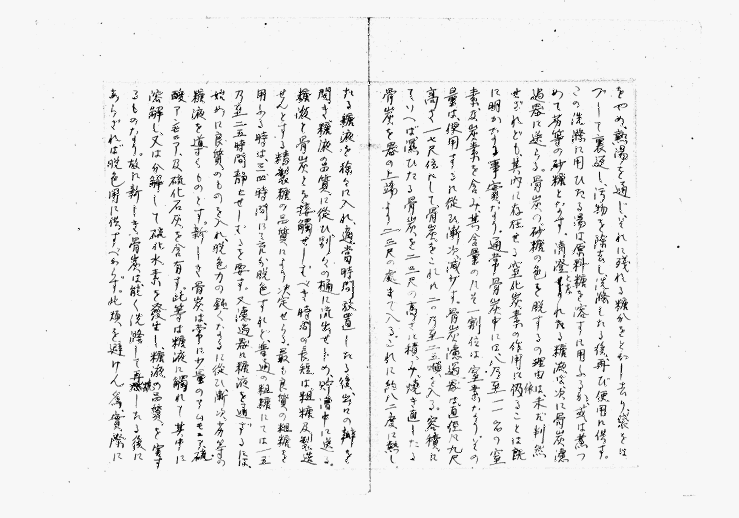 をやめ熱湯を通じそれに残れる糖分をとかし去り袋をは
づして裏返し汚物を除去し洗滌したる後再び使用に供す。
この洗滌に用ひたる湯は原料糖を溶すに用ふるも或は煮つ
めて劣等の砂糖となす。清澄となされたる糖液は次に骨炭濾
過器に送らる。骨炭の砂糖の色を脱するの理由は未だ判然
せざれども其内に存在せる窒化炭素の作用に係ることは既
に明かなる事実なり。通常骨炭中には八乃至一一%の窒
素及炭素を含み其含量の凡そ一割位は窒素なり。その
量は使用するに従ひ漸次減少す。骨炭濾過器は直径凡九尺
高さ一八尺位にして骨炭をこれに二〇乃至二五噸を入る。容積に
ていへば濕ひたる骨炭を二三尺の高さに積み焼き直したる
骨炭を器の上端より二三尺の處まで入る。これに約八二度に熱し
たる糖液を徐々に入れ適當時間放置したる後出口の瓣を
開き糖液の品質に從ひ別々の桶に流出せしめ貯藏中に送る。
糖液と骨炭とを接觸せしむべき時間の長短は粗糖及製造
せんとする精製糖の品質により決定せらる。最も良質の粗糖を
用ふる時は三四時間にて充分脱色すれど普通の粗糖にては一五
乃至二五時間靜止せしむるを要す。又濾過器に糖液を通ずるには
始めに良質のものを入れ脱色力の鈍くなるに從ひ漸次劣等の
糖液を導くものとす。新しき骨炭は常に少量のアムモニア、硫
酸アンモニア及硫化石灰を含有す。此等は糖液に觸れて其中に
溶解し又は分解して硫化水素を發生し糖液の品質を害す
るものなり。故に新しき骨炭は能く洗滌して再燒したる後に
あらざれば脱色用に供すべからず。此損を避けん爲實際に